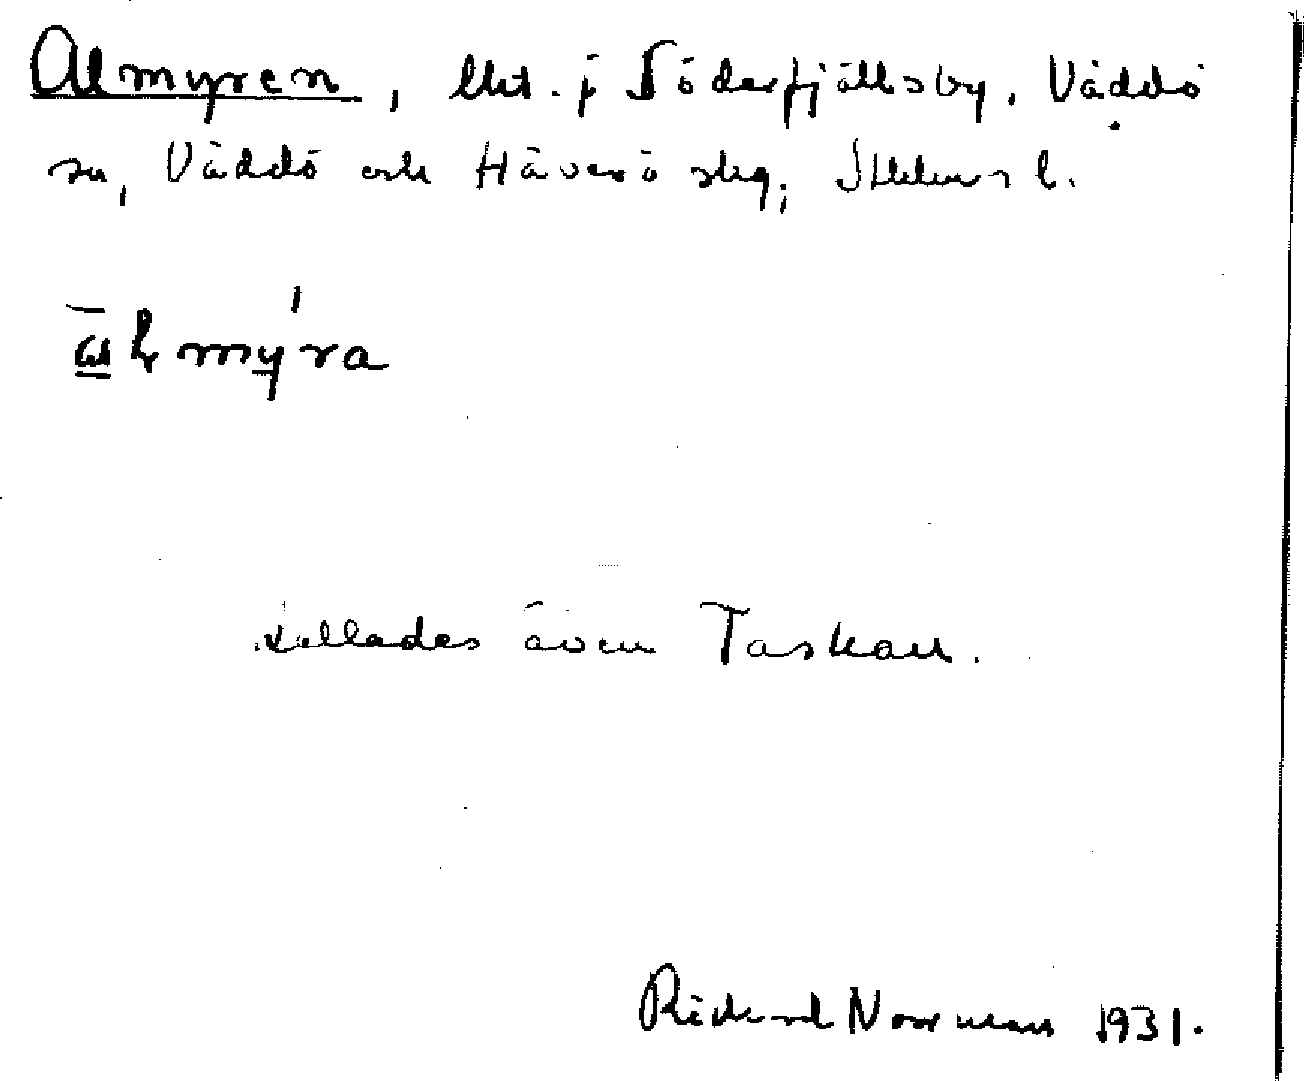 Almyren, lht. i Söderfjällsby. Väddö
sn, Väddö och Häverö skg; Sthlms l.
a̲lmý̲ra
kallades även Taskan.
Rickard Norrman 1931.